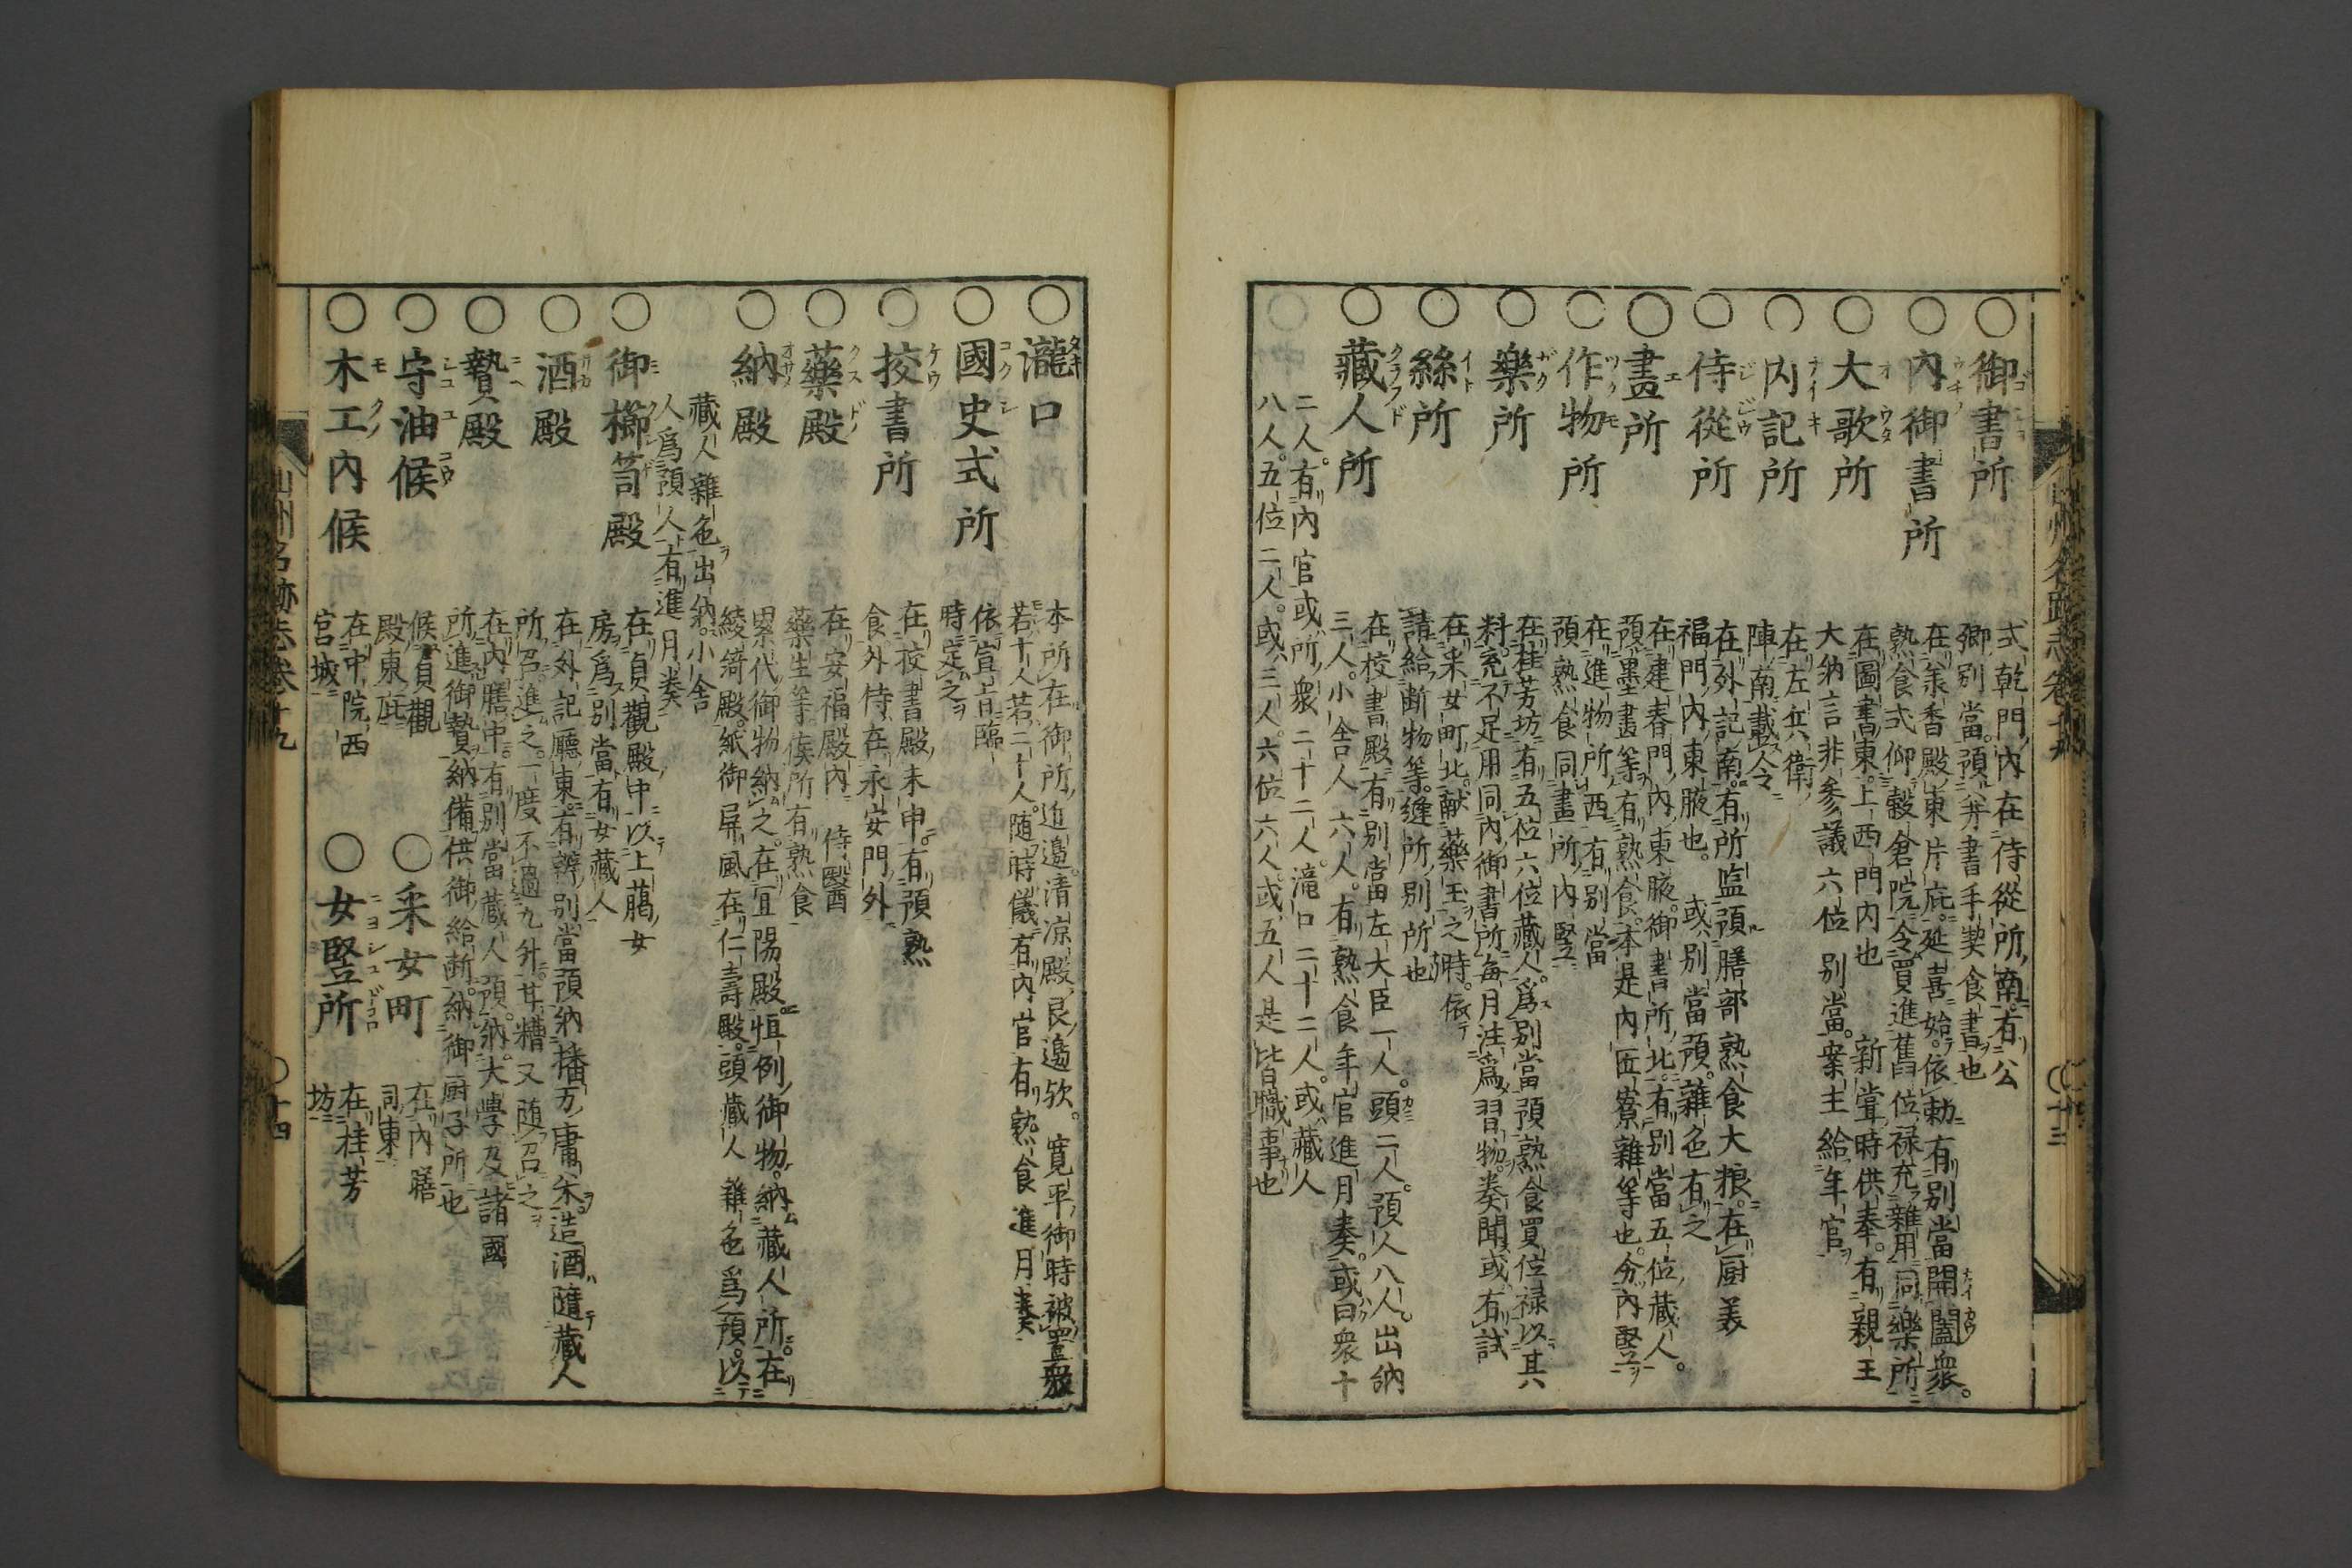 ○御書所
式乾門内在侍從所南有公
卿別當預并書手熟食書也
○内御書所
在承香殿東片庇延喜始依勅有別當開闔衆
熟食式仰穀倉院令買進舊位禄充雜用同樂所
○大歌所
在圖書東上西門内也 新甞時供奉有親王
大納言非參議六位別當案主給年官
○内記所
在左兵衛
陣南載令
○侍從所
在外記南有所監預膳部熟食大粮在厨美
福門内東腋也 或別當預雜色有之
○畫所
在建春門内東腋御書所北有別當五位藏人
預墨畫等有熟食本是内匠寮雜等也分内竪
○作物所
在進物所西有別當
預熟食同畫所内竪
○樂所
在桂芳坊有五位六位藏人爲別當預熟食買位禄以其
料充不足用同内御書所毎月注爲習物奏聞或有試
○絲所
在采女町北獻藥玉之時依
請給断物等縫所別所也
○藏人所
在校書殿有別當左大臣一人頭二人預人八人出納
三人小舎人六人有熟食年官進月奏或曰衆十
二人有内官或所衆二十二人滝口二十二人或藏人
八人五位二人或三人六位六人或五人是皆職事也
○瀧口
本所在御所近邉清凉殿艮邉欤寛平御時被置
若十人若二十人随時儀有内官有熟食進月奏
○國史式所
依宣旨臨
時定之
○挍書所
在校書殿未申有預熟
食外侍在永安門外
○藥殿
在安福殿内 侍醫
藥生等侯所有熟食
○納殿
累代御物納之在宜陽殿恒例御物納藏人所在
綾綺殿紙御屏風在仁壽殿頭藏人雜色爲預以
藏人雜色出納小舎
人爲預人有進月奏
○御櫛笥殿
在貞觀殿中以上﨟女
房爲別當有女藏人
○酒殿
在外記廳東有辨別當預納播万庸米造酒随藏人
所召進之一度不過九升其糟又随召之
○贄殿
在内膳中有別當藏人預納大學及諸國
所進御贄納備供御給断納御厨子所也
○守油候
候貞觀
殿東庇
○采女町
在内膳
同東
○木工内候
在中院西
宮城
○女竪所
在桂芳
坊
山州名跡志卷十九
○十四